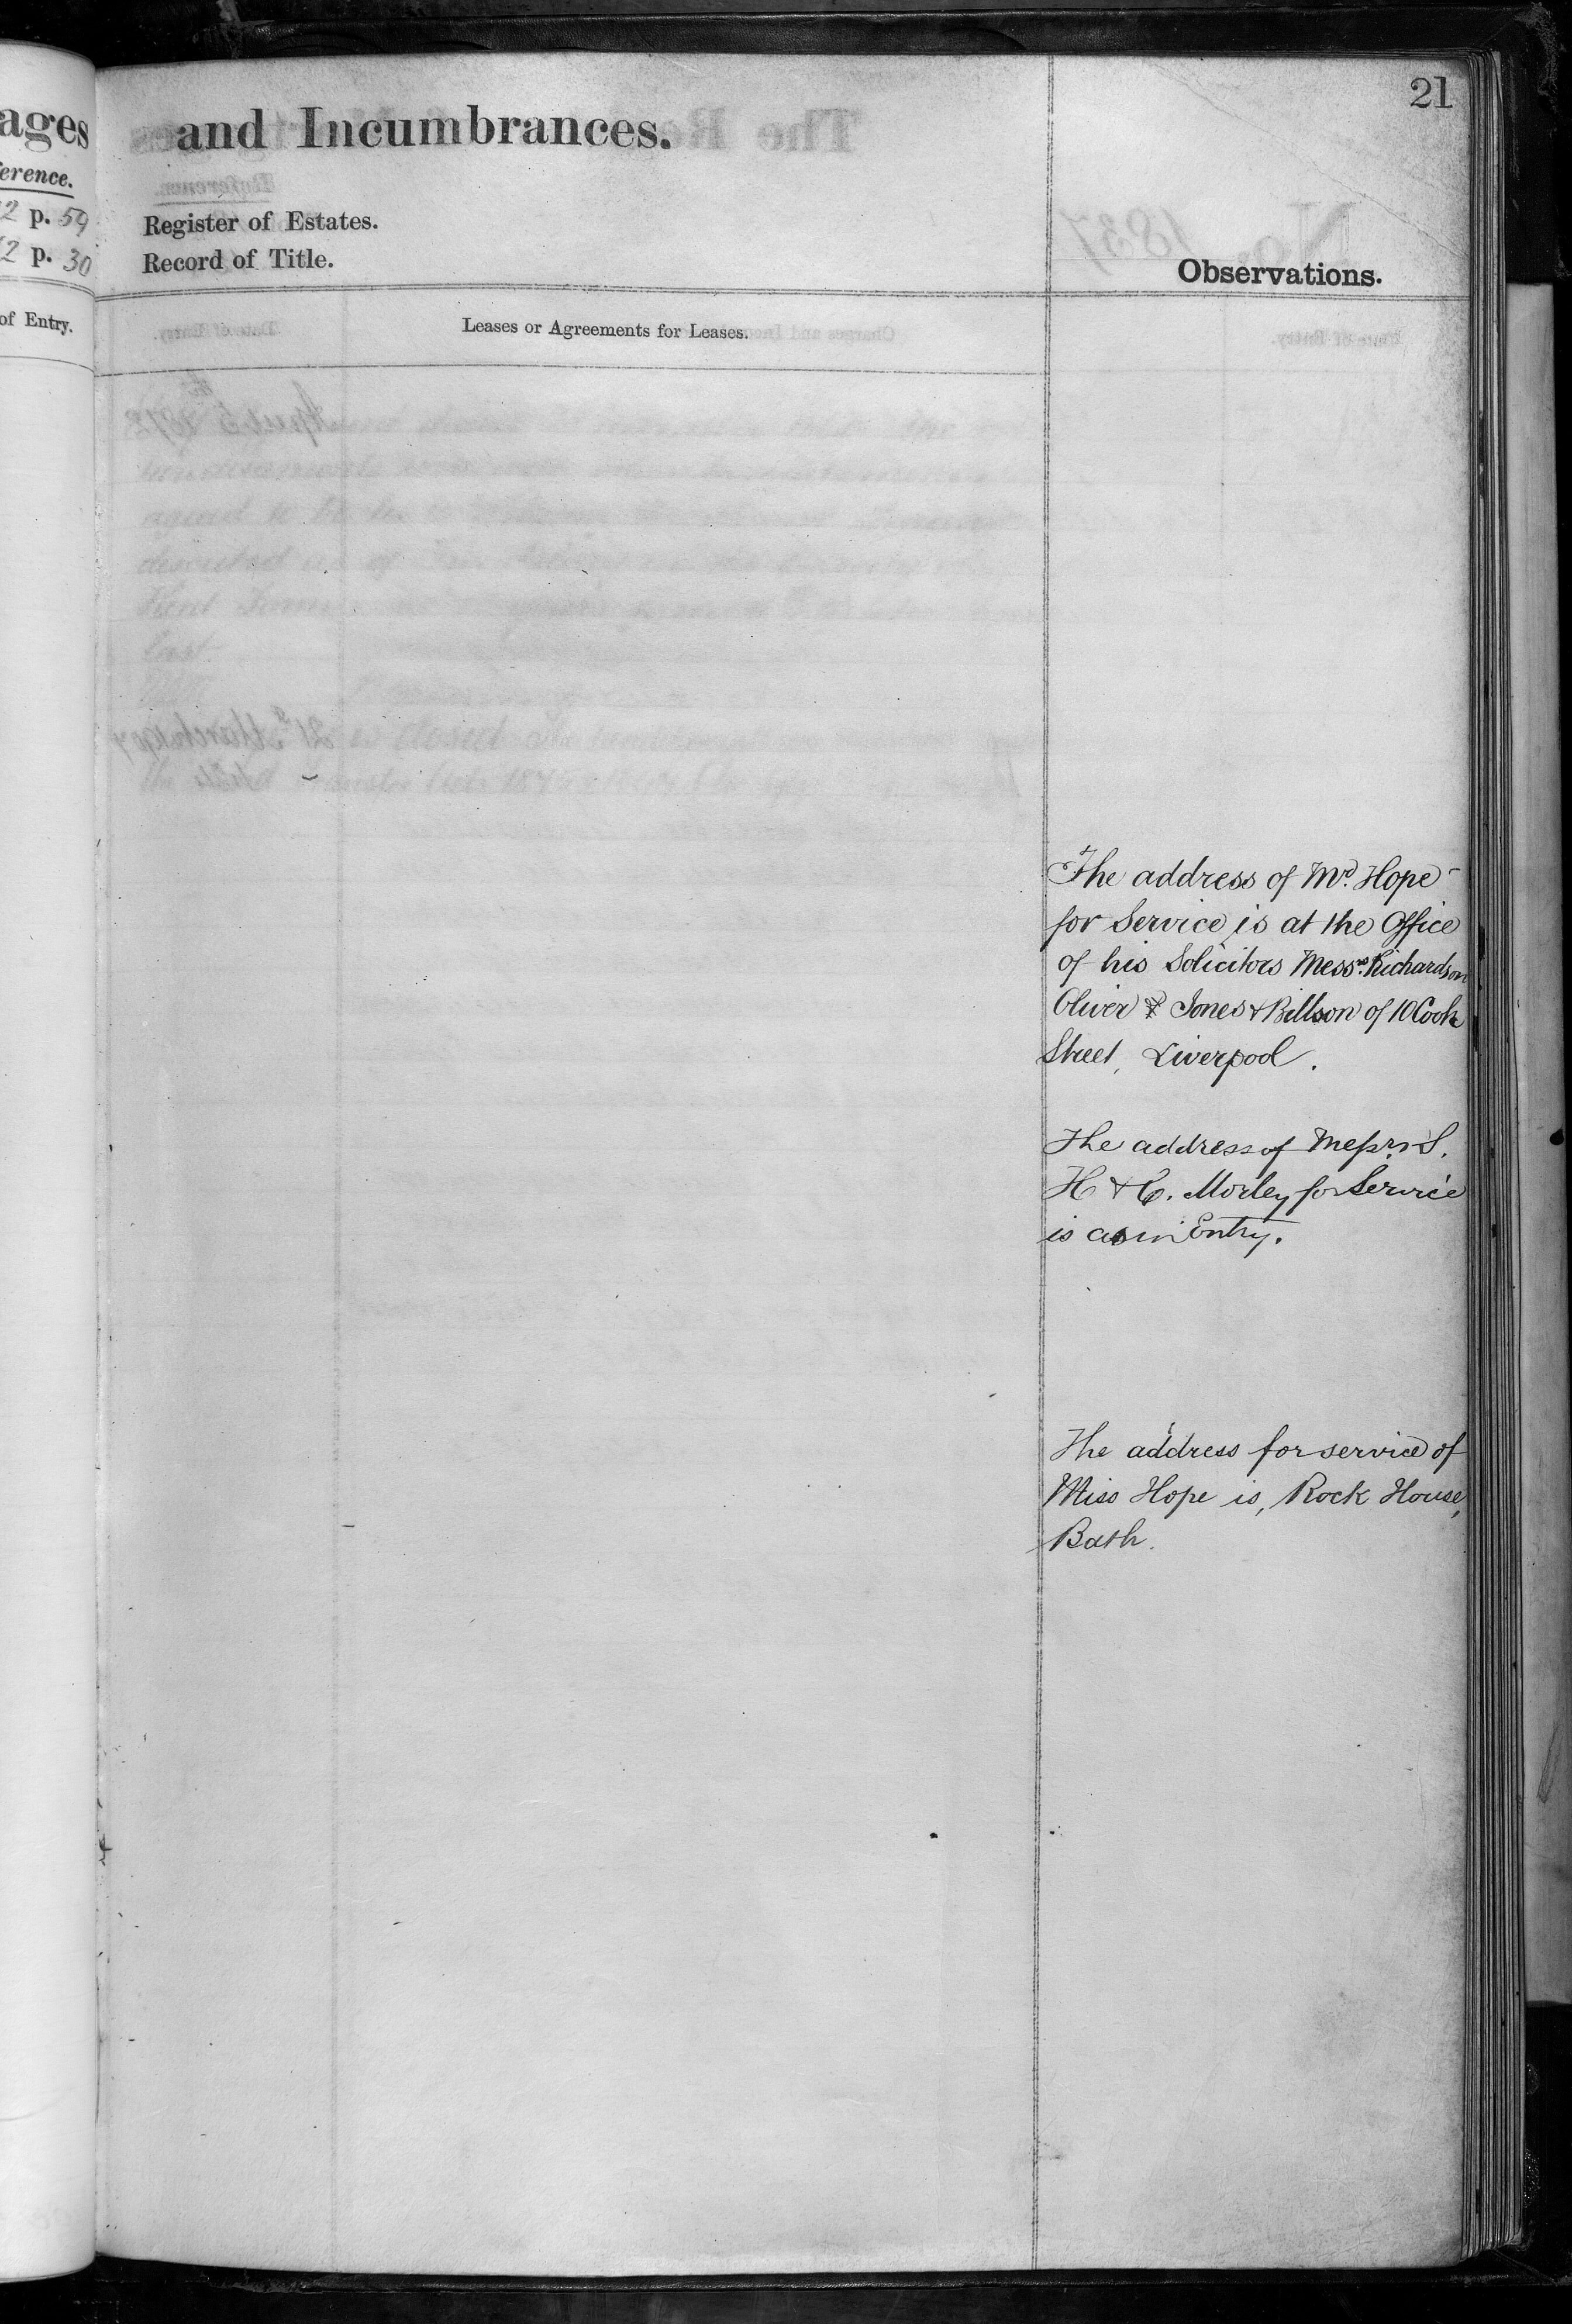 21
ages
and Incumbrances.
erence.
2 p. 59
Register of Estates.
2 p. 30
Record of Title.
Observations.
of Entry.
Leases or Agreements for Leases.
The address of Mr. Hope
for Service is at the Office
of his Solicitors Messrs. Richardson
Oliver & Jones & Billson of 10 Cook
Street, Liverpool.
The address of Messrs S.
H & C. Morley for Service
is as in Entry.
The address for service of
Miss Hope is, Rock House,
Bath.